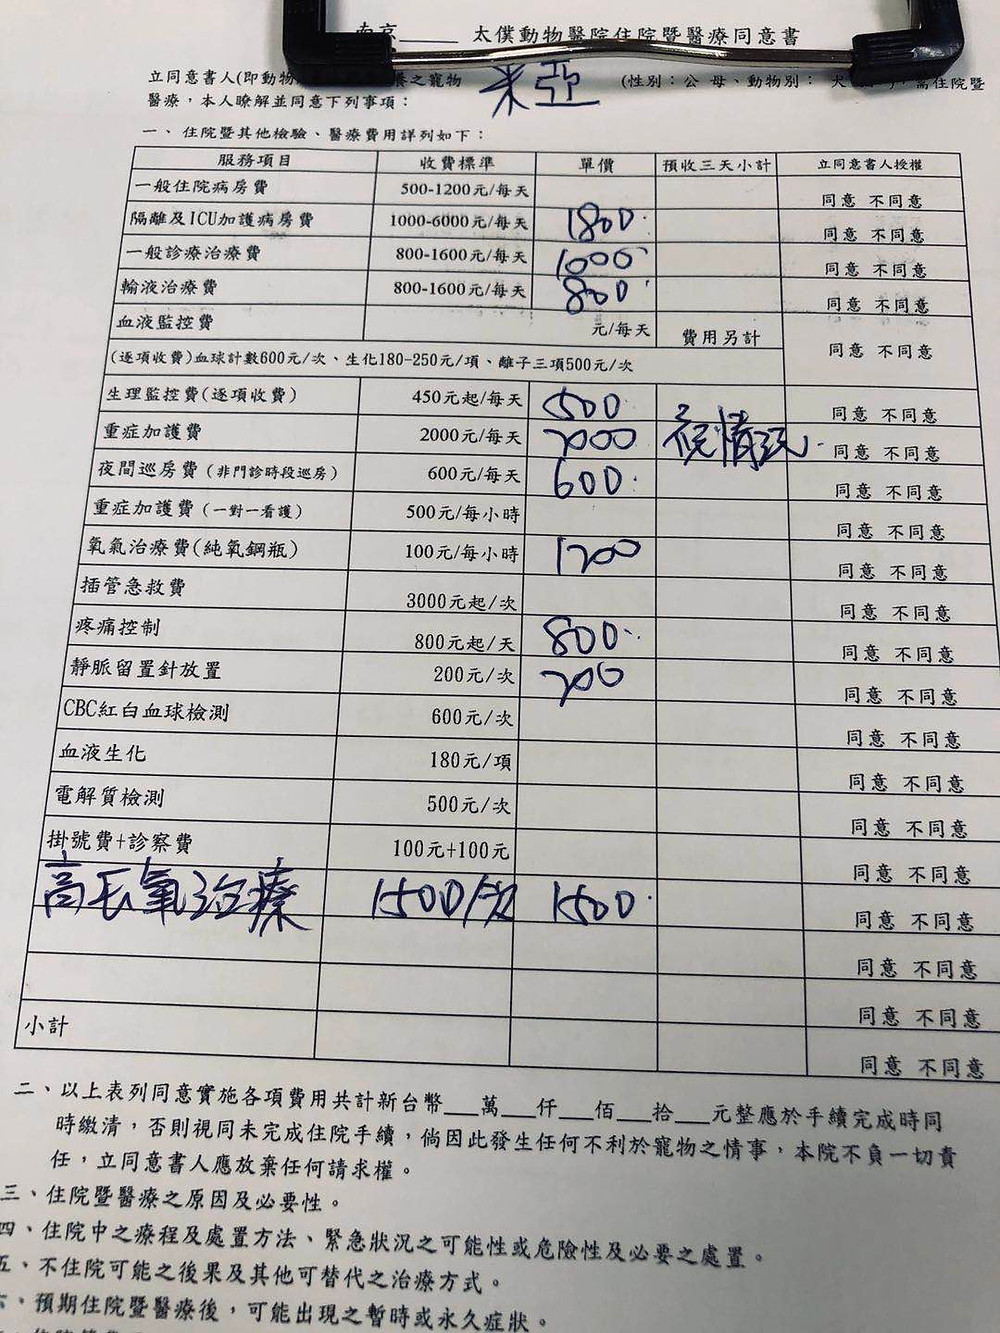 太僕動物醫院住院暨醫療同意書
立同意書人(即動物 之寵物 米亞 (性別：公 母、動物別： 犬 需住院暨
醫療，本人瞭解並同意下列事項：
一、住院暨其他檢驗、醫療費用詳列如下：
服務項目 收費標準 單價 預收三天小計 立同意書人授權
一般住院病房費 500-1200元/每天 同意 不同意
隔離及ICU加護病房費 1000-6000元/每天 1800 同意 不同意
一般診療治療費 800-1600元/每天 1000 同意 不同意
輸液治療費 800-1600元/每天 800 同意 不同意
血液監控費 元/每天 費用另計 同意 不同意
(逐項收費)血球計數600元/次、生化180-250元/項、離子三項500元/次
生理監控費(逐項收費) 450元起/每天 500 同意 不同意
重症加護費 2000元/每天 2000 視情況 同意 不同意
夜間巡房費(非門診時段巡房) 600元/每天 600 同意 不同意
重症加護費(一對一看護) 500元/每小時 同意 不同意
氧氣治療費(純氧鋼瓶) 100元/每小時 1200 同意 不同意
插管急救費 3000元起/次 同意 不同意
疼痛控制 800元起/天 800 同意 不同意
靜脈留置針放置 200元/次 200 同意 不同意
CBC紅白血球檢測 600元/次 同意 不同意
血液生化 180元/項 同意 不同意
電解質檢測 500元/次 同意 不同意
掛號費+診察費 100元+100元 同意 不同意
高壓氧治療 1500/次 1500 同意 不同意
同意 不同意
同意 不同意
小計 同意 不同意
二、以上表列同意實施各項費用共計新台幣___萬___仟___佰___拾___元整應於手續完成時同
時繳清，否則視同未完成住院手續，倘因此發生任何不利於寵物之情事，本院不負一切責
任，立同意書人應放棄任何請求權。
三、住院暨醫療之原因及必要性。
四、住院中之療程及處置方法、緊急狀況之可能性或危險性及必要之處置。
五、不住院可能之後果及其他可替代之治療方式。
六、預期住院暨醫療後，可能出現之暫時或永久症狀。